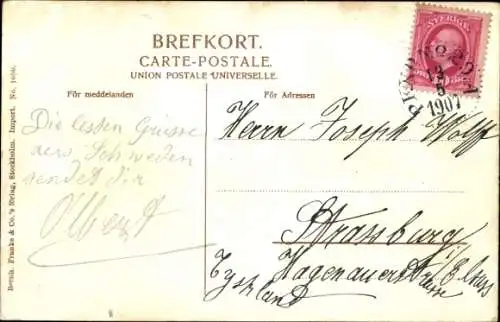 BREFKORT.
CARTE-POSTALE.
UNION POSTALE UNIVERSELLE.
För meddelanden
För Adressen
SVERIGE
1907
Die besten Grüsse
aus Schweden
sendet Dir
Albert
Herrn Joseph Wolff
Strassburg i/Elsass
Hagenauerstrasse
Tyskland
Bernh. Franke & Co.'s förlag, Stockholm. Import.